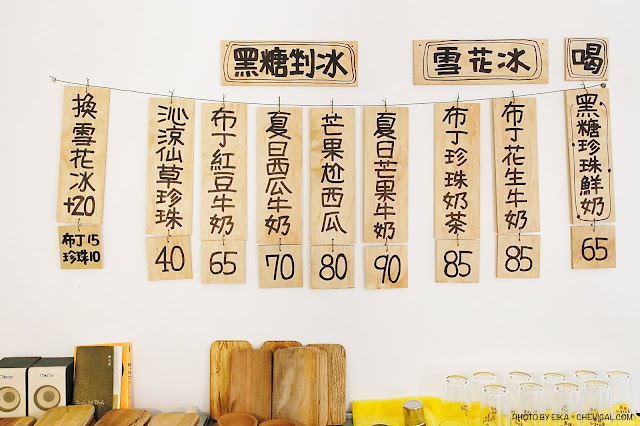 黑糖剉冰
雪花冰
喝
換雪花冰
+20
布丁15
珍珠10
沁涼仙草珍珠
40
布丁紅豆牛奶
65
夏日西瓜牛奶
70
芒果尬西瓜
80
夏日芒果牛奶
90
布丁珍珠奶茶
85
布丁花生牛奶
85
黑糖珍珠鮮奶
65
PHOTO BY EIKA • CHEVICAL.COM